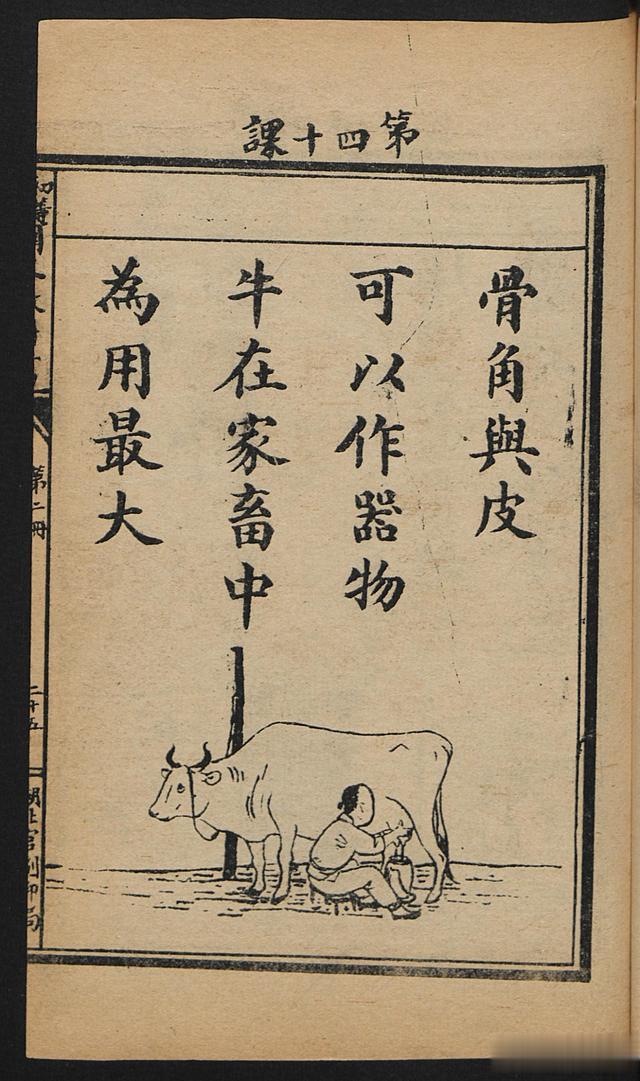 第四十課
骨角與皮
可以作器物
牛在家畜中
為用最大
第二冊
二十五
湖北官刷印局